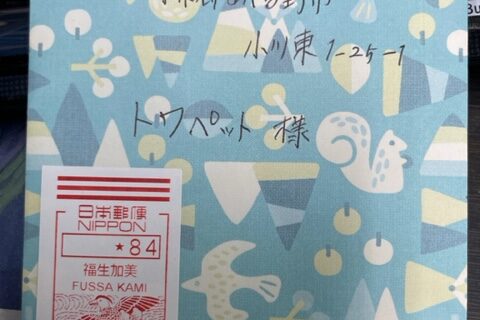 小川東1-25-1
トワペット 様
日本郵便
NIPPON
*84
福生加美
FUSSA KAMI
Bu